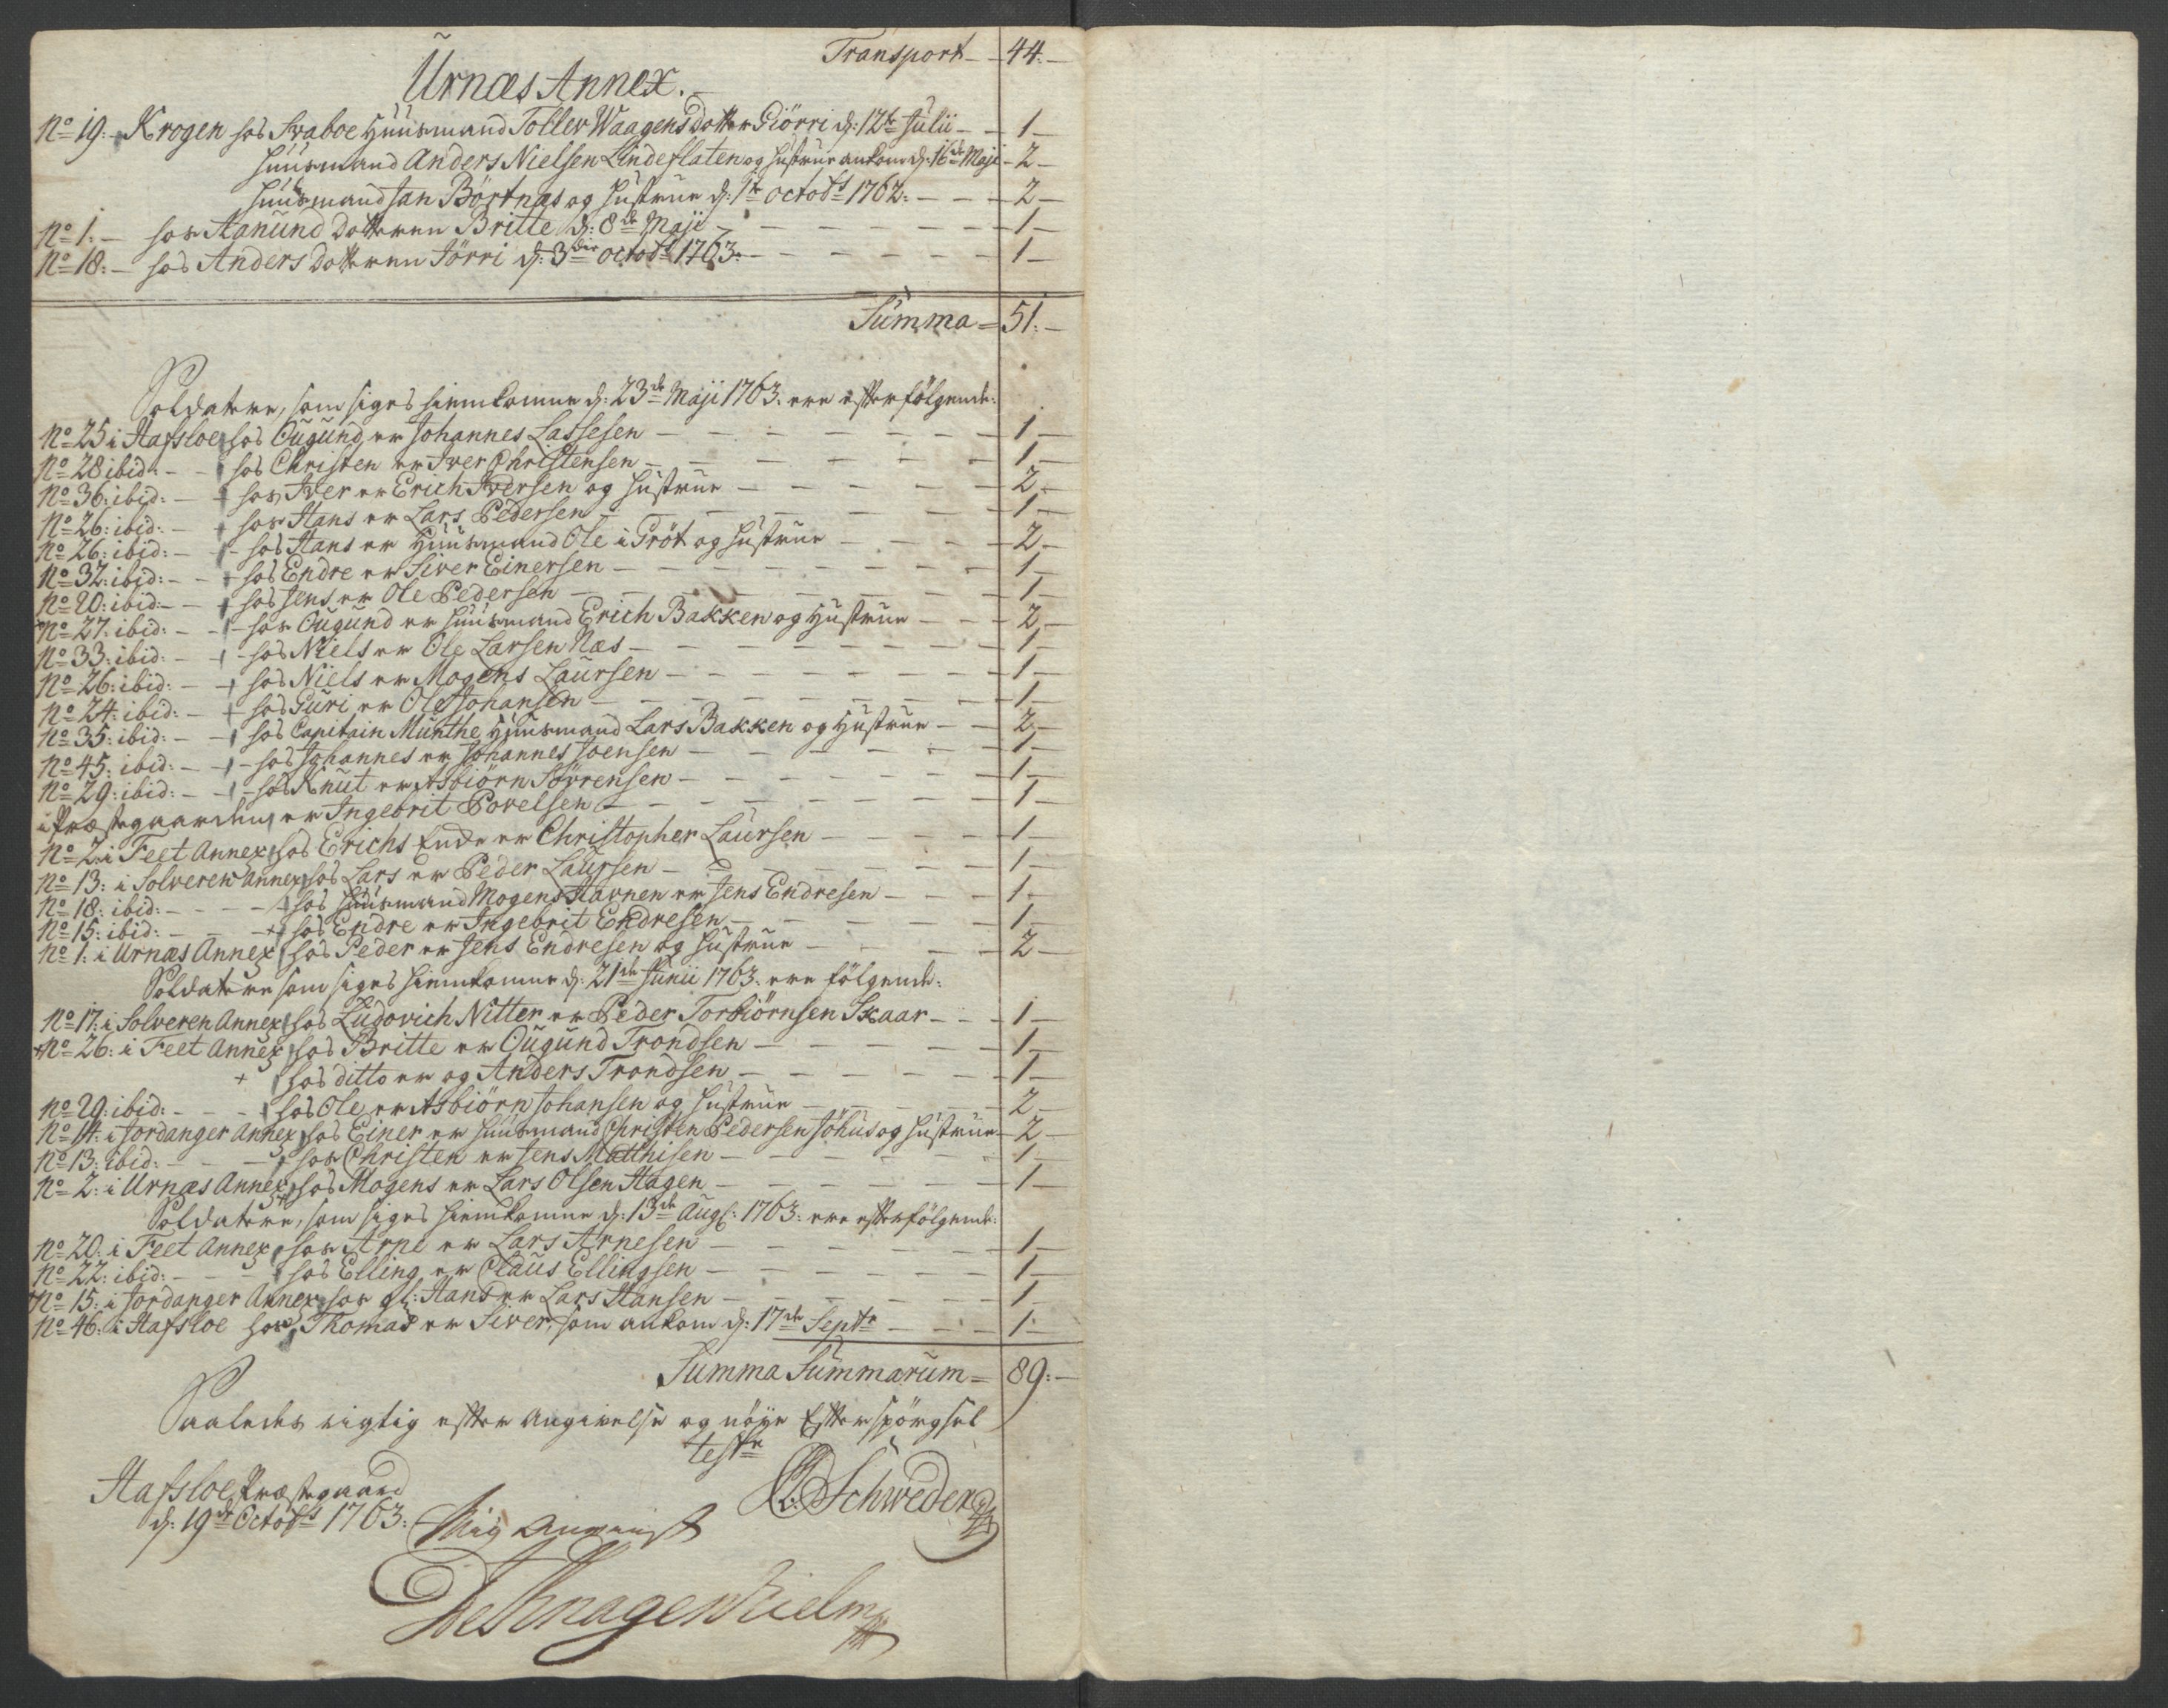 Transport - 44. -
Urnæs Annex.
No 19: - Krogen hos Svaboe Huusmand Tollev Waagens dotter Giörri d: 12te Julii - - 1 -
Huusmand Anders Nielsen Lindeflaten og hustrue ankom d: 16de Maji - 2 -
huusmand Jan Börtnæs og hustrue d: 1te octobs 1762. - - - 2 -
No 1: - hos Aanund dotteren Britte d: 8de Maji - - - - - - 1 -
No 18: - hos Anders dotteren Jörri d: 3die octobs 1763. - - - - - - 1 -
Summa = 51. -
Soldatere, som siges hiemkomne d: 23de Maji 1763. ere efterfölgende:
No 25 i Hafsloe hos Ougund, er Johannes Lassesen - - - - - 1 -
No 28 ibid: - - hos Christen er Iver Christensen - - - - - 1 -
No 36: ibid: - hos Iver er Erich Iversen og hustrue - - - - - 2 -
No 26: ibid: - hos Hans er Lars Pedersen - - - - - 1 -
No 26: ibid: - hos Hans er Huusmand Ole i Gröt og hustrue - - - 2 -
No 32: ibid: - - hos Endre er Siver Einersen - - - - - 1 -
No 20: ibid: - - hos Jens er Ole Pedersen - - - - - 1 -
No 27: ibid: - - hos Ougund er huusmand Erich Bakken og Hustrue - - - 2 -
No 33: ibid: - - hos Niels er Ole Larsen Næs - - - - - 1 -
No 26: ibid: - - hos Niels er Mogens Laursen - - - - - 1 -
No 24: ibid: - hos Guri er Ole Johansen - - - - - 1 -
No 35: ibid: - - hos Capitain Munthe Huusmand Lars Bakken og Hustrue - - 2 -
No 45: ibid: - - hos Johannes er Johannes Joensen - - - - - 1 -
No 29: ibid: - - hos Knut er Asbiörn Sörrensen - - - - - 1 -
i Præstegaarden er Ingebrit Povelsen - - - - - 1 -
No 2: i Feet Annex hos Erichs Enke er Christopher Laursen - - - - 1 -
No 13: i Solveren Annex hos Lars er Peder Laursen - - - - - 1 -
No 18: ibid: - - - hos huusmand Mogens Havnen er Jens Endresen - - - 1 -
No 15: ibid: - - - hos Endre er Ingebrit Endresen - - - - 1 -
No 1: i Urnæs Annex hos Peder er Jens Endresen og hustrue - - - - 2 -
Soldatere som siges hiemkomne d: 21de Junii 1763. ere fölgende:
No 17: i Solveren Annex hos Ludovich Nitter er Peder Torbiörnsen Skaar - - - 1 -
No 26: i Feet Annex hos Britte er Ougund Trondsen - - - - - 1 -
+ hos ditto er og Anders Trondsen - - - - - 1 -
No 29: ibid: - - - hos Ole er Asbiörn Johansen og hustrue - - - - - 2 -
No 14: i Jordanger Annex hos Einer er huusmand Christen Pedersen Johus og hustrue - 2 -
No 13: ibid: - - - hos Christen er Jens Matthisen - - - - - 1 -
No 2: i Urnæs Annex hos Mogens er Lars Olsen Hagen - - - - - 1 -
Soldatere, som siges hiemkomne d: 13de Aug: 1763. ere efterfölgende:
No 20: i Feet Annex hos Arne er Lars Arnesen - - - - - 1 -
No 22: ibid: - - - hos Elling er Claus Ellingsen - - - - - 1 -
No 15: i Jordanger Annex hos gl: Hans er Lars Hansen - - - - - 1 -
No 46: i Hafsloe hos Thomas er Siver, som ankom d: 17de Septr - - - 1 -
Summa Summarum = 89. -
Saaledes rigtig efter Angivelse og nöye Efterspörgsel
teste
Schweder
Hafsloe Præstegaard
d: 19de Octobs 1763.
Mig Anvist
De Knagenhielm